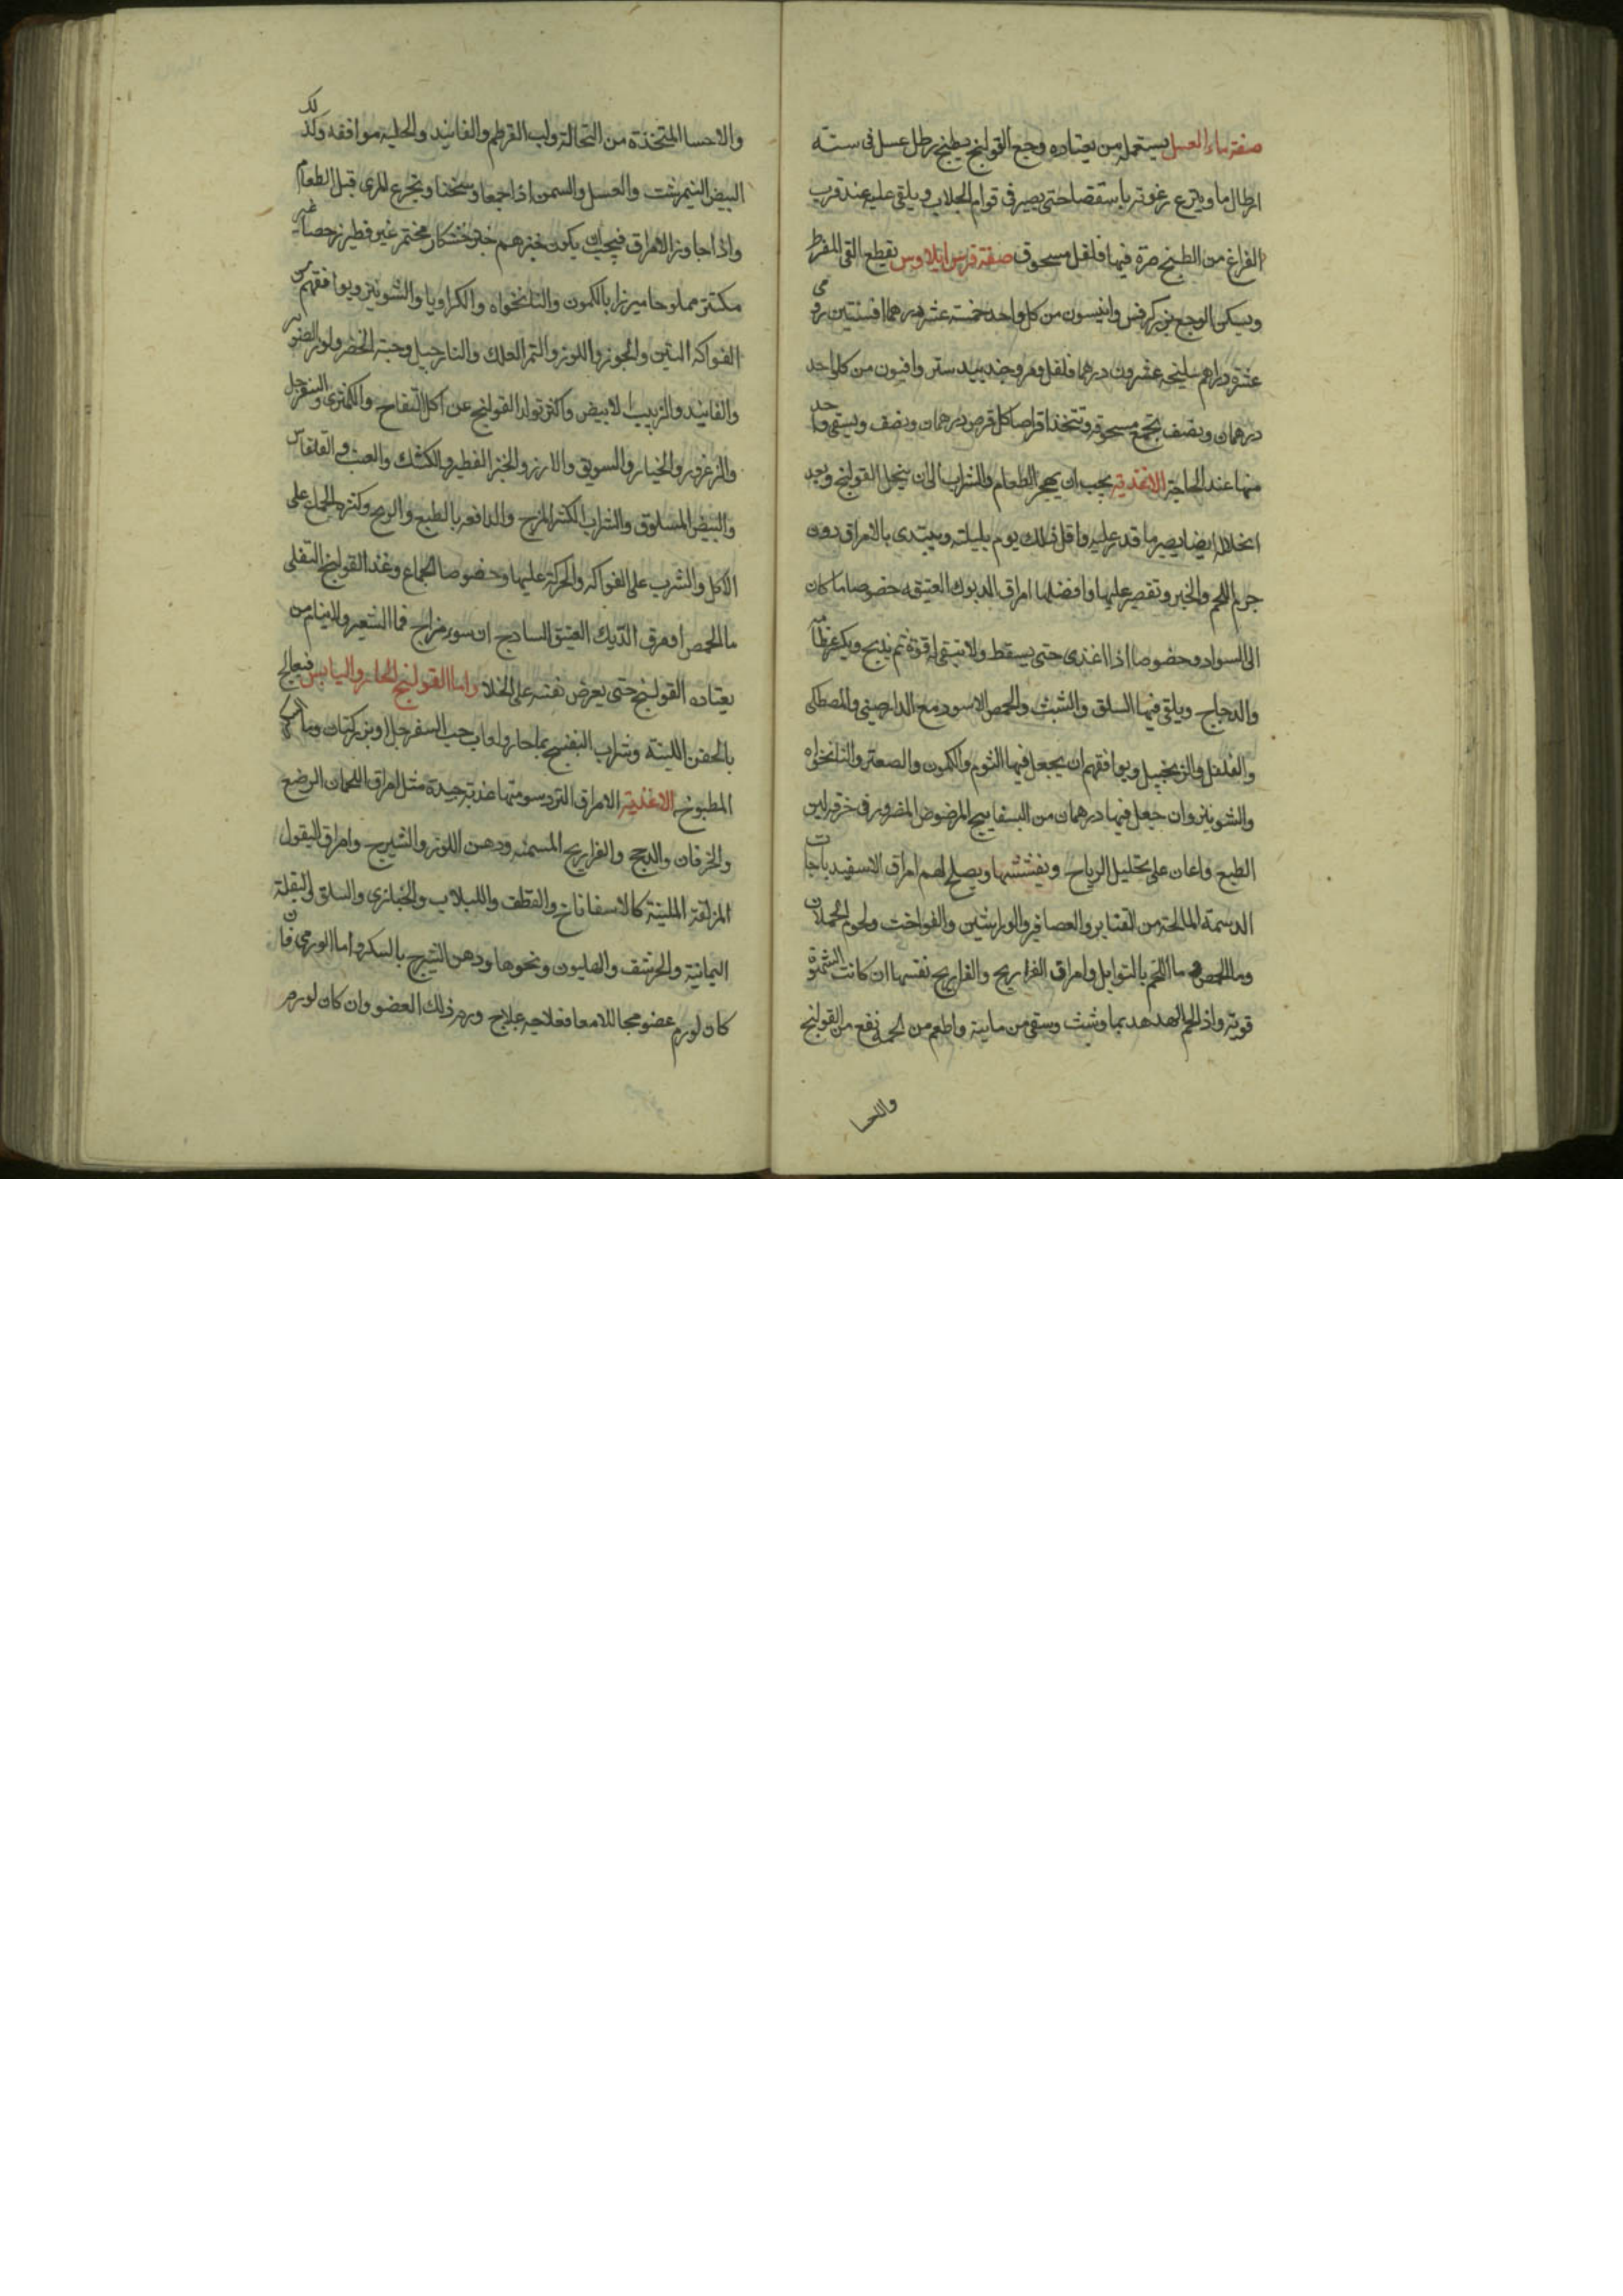 صفة ماء العسل يستعمله من يعتاده وجع القولنج يطبخ رطل عسل فى ستة
ارطال ما وينزع رغوته باستقصا حتى يصير فى قوام الجلاب ويلقى عليه عند قرب
الفراغ من الطبخ صرة فيها فلفل مسحوق صفة قرص ايلاوس يقطع القى المفرط
ويسكن الوجع بزر كرفس وانيسون من كل واحد خمسة عشر درهما افسنتين رومى
عشرة دراهم سليخه عشرون درهما فلفل ومر وجند بيدستر وافيون من كل واحد
درهمان ونصف يجمع مسحوقه وتتخذ اقراصا كل قرص درهمان ونصف ويسقى واحد
منها عند الحاجة الاغذية يجب ان يهجر الطعام والشراب الى ان ينحل القولنج وبعد
انحلاله ايضا يصبر ما قدر عليه واقل ذلك يوم بليلته ويبتدى بالامراق دون
جرم اللحم والخبز وتقصر عليها وافضلها امراق الديوك العتيقه خصوصا ما كان
الى السواد وخصوصا اذا اغذى حتى يسقط ولا تبقى له قوة ثم يذبح ويكثر
والدجاج ويلقى فيها السلق والشبث والحمص الاسود مع الدارصينى والمصطكى
والفلفل والزنجبيل ويوافقهم ان يجعل فيها الثوم والكمون والصعتر والنانخواه
والشونيز وان جعل فيها درهمان من البسفايج المرضوض المصرور فى خرقه لين
الطبع واعان على تحليل الرياح ونفشها ويصلح لهم امراق الاسفيدباجات
الدسمة المالحة من القنابر والعصافير والوراشين والفواخت ولحوم الحملان
وما الحمص وما اللحم بالتوابل وامراق الفراريج والفراريج نفسها ان كانت الشهوة
قوية واذا لحم الهدهد بما وشبث وسقى من مائه واطعم من لحمه نفع من القولنج
والاحسا
والاحسا المتخذة من النخالة ولب القرطم والفانيد والحلبه موافقه وكذلك
البيض النيمرشت والعسل والسمن اذا جمعا وسخنا ويتجرع المرى قبل الطعام
واذا جاوز الامراق فيجب ان يكون خبزهم خبز خشكار مختمر غير فطير رخصا غير
مكتنز مملوحا مبزرا بالكمون والنانخواه والكراويا والشونيز ويوافقهم من
الفواكه التين والجوز واللوز والتمر العلك والنارجيل وحبة الخضرا ولوز الصنوبر
والفانيد والزبيب الابيض واكثر تولد القولنج عن اكل التفاح والكمثرى والسفرجل
والزعرور والخيار والسويق والارز والخبز الفطير والكشك والعصب والقلقاس
والبيض المسلوق والشراب الكثير المزج والدافعه بالطبع والريح وكثرة الجماع على
الاكل والشرب على الفواكه والحركة عليها وخصوصا الجماع وغذا القولنج الثفلى
ما الحمص او مرق الديك العتيق الساذج ان سور مزاج فما الشعير ولا ينام من
يعتاده القولنج حتى يعرض نفسه على الخلا واما القولنج الحار واليابس فيعالج
بالحقن اللينة وشراب البنفسج بما حار ولعاب حب السفرجل او بزر كتان وما
المطبوخ الاغذية الامراق التى دسومتها عذبة جيدة مثل امراق اللحمان الرضع
والخرفان والدجج والفراريج المسمنه ودهن اللوز والشيرج وامراق البقول
المزلقة الملينة كالاسفاناخ والقطف واللبلاب والخبازى والسلق والبقلة
اليمانية والحرشف والهليون ونحوها ودهن الشيرج بالسكر واما الورمى فان
كان لورم عضو مجا للامعا فعلاجه علاج ورم ذلك العضو وان كان لورم